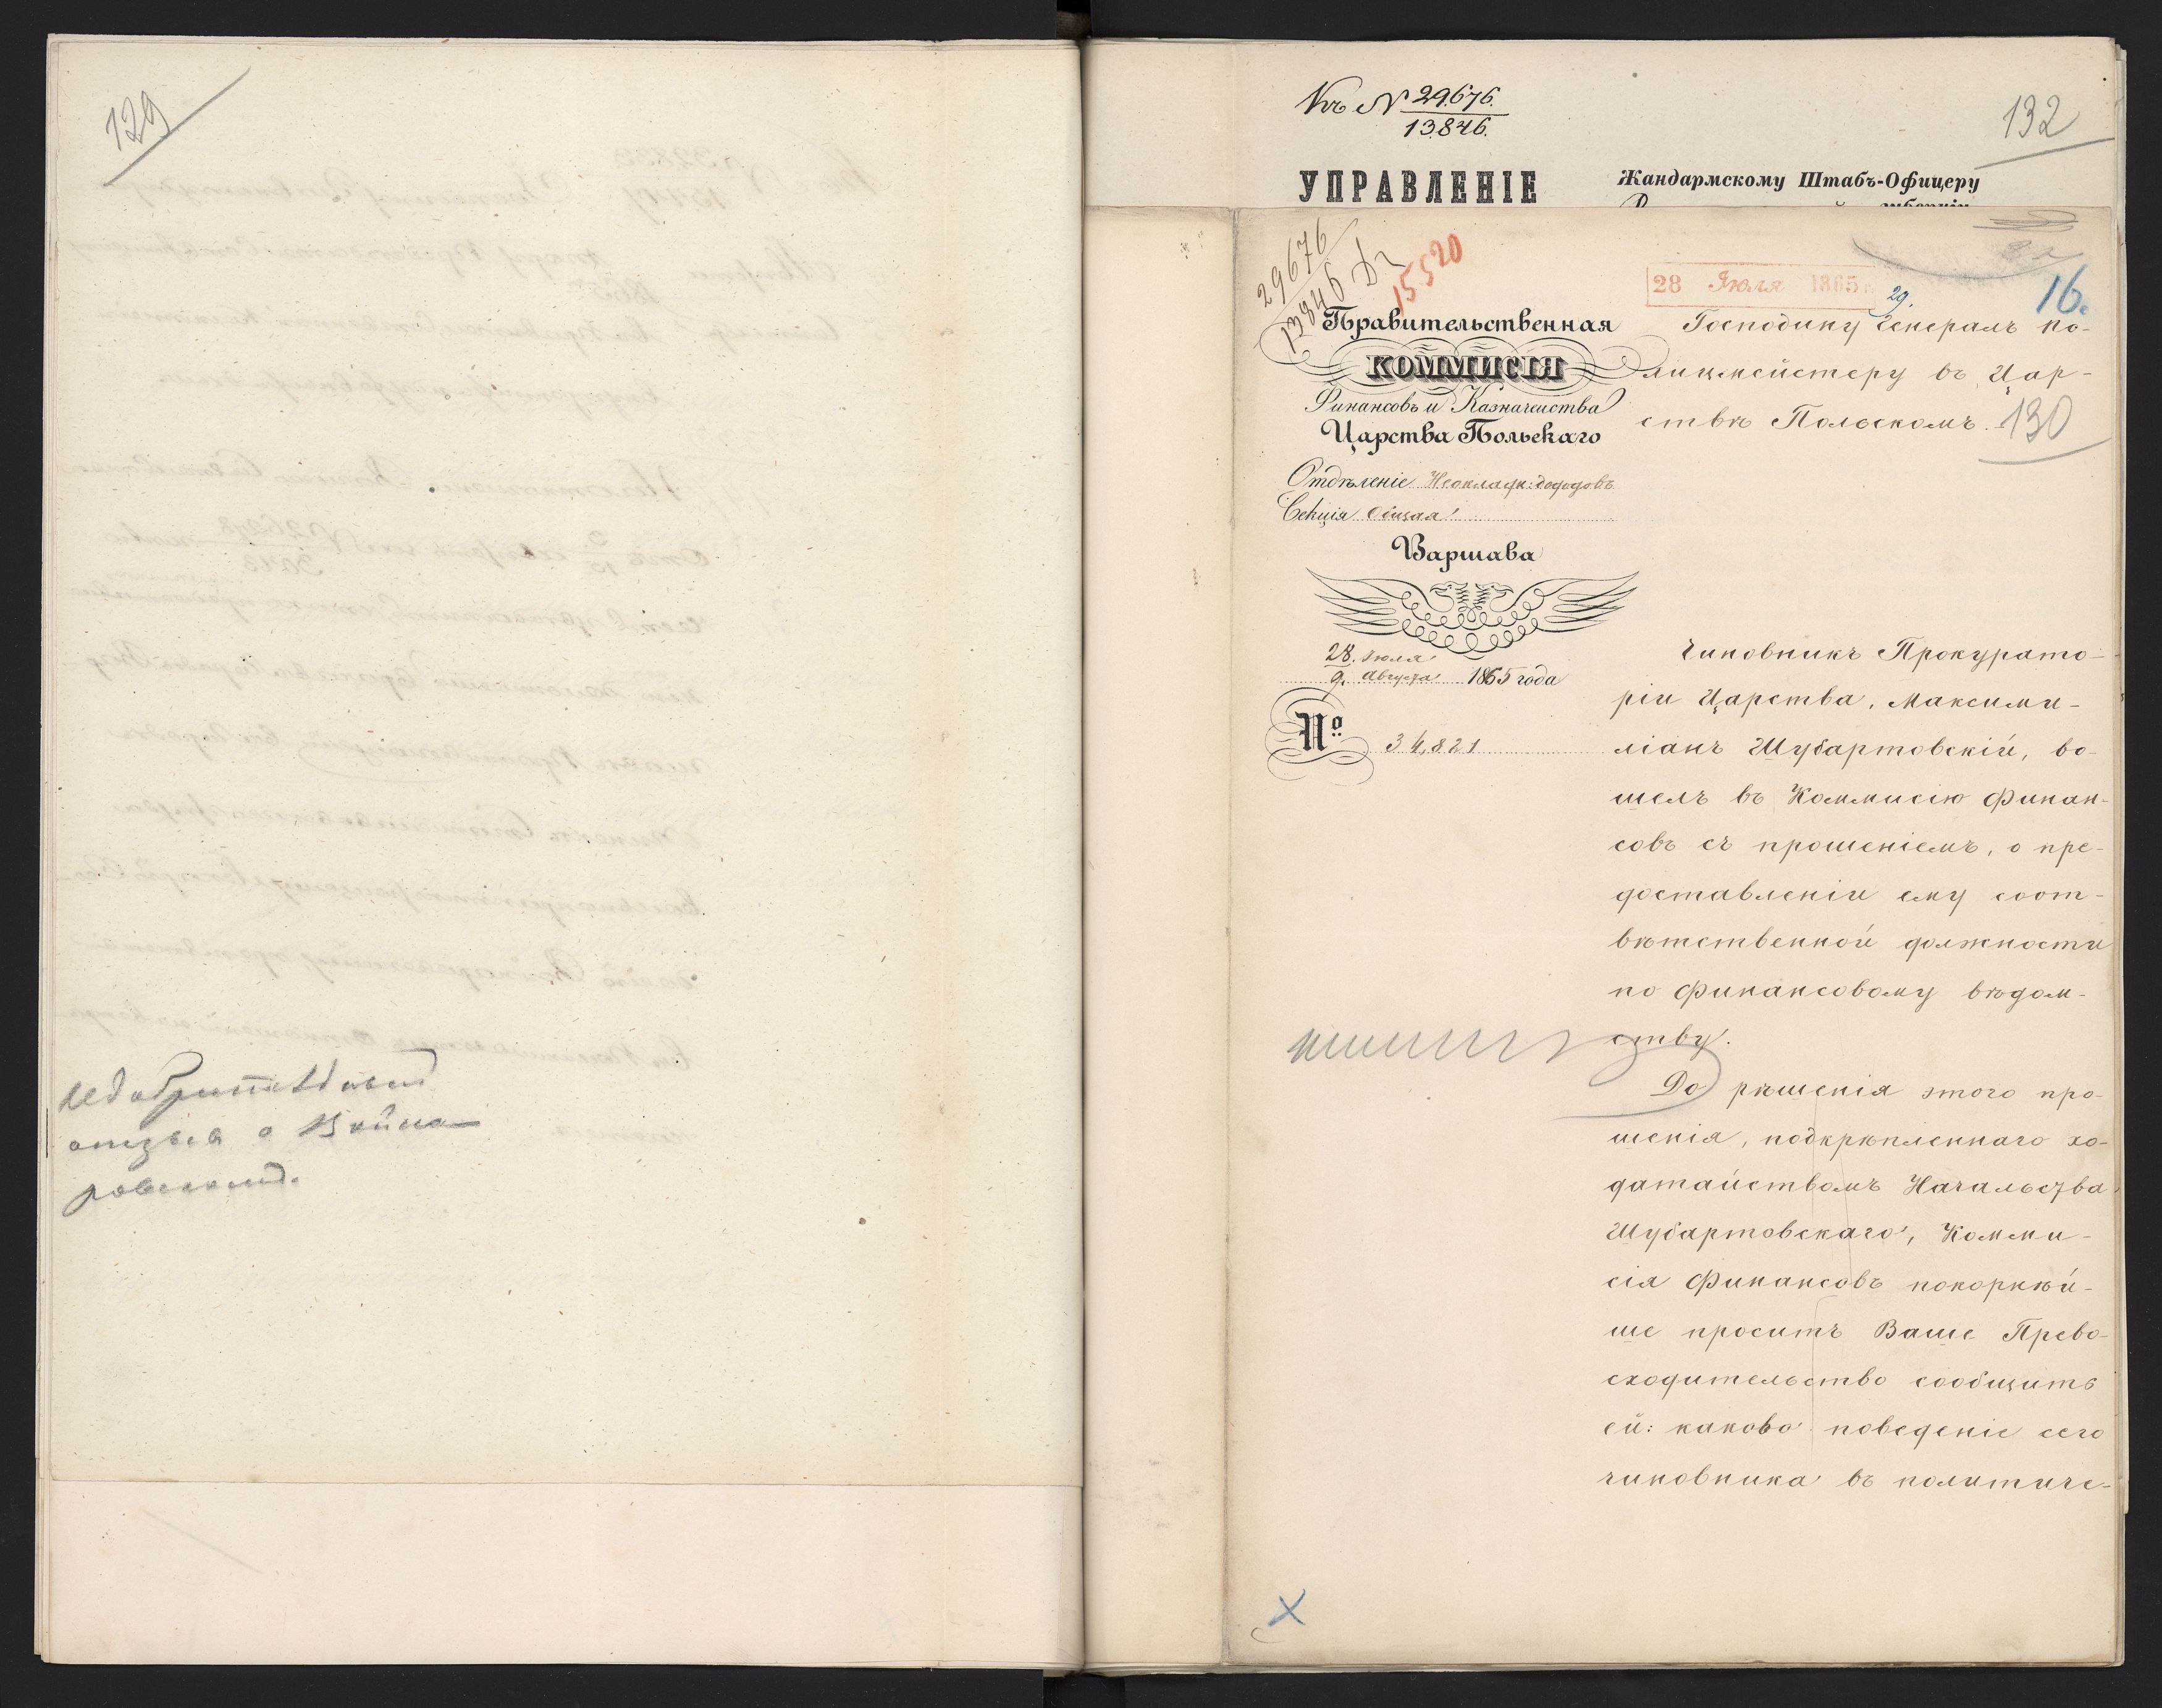 129
отзыв о Война
ровском.
Къ № 29.676.
13.846.
132
УПРАВЛЕНІЕ
Жандармскому Штабъ-Офицеру
29676
13846
15520
28 Июля 1865
29.
16.
Правительственная
КОММИСІЯ
Финансовъ и Казначейства
Царства Польскаго
Отдѣленіе Неокладн: доходовъ
Секція Общая
Варшава
28. Июля
9. Августа 1865 года
№ 34,821
Господину Генералъ по-
лицмейстеру въ Цар-
ствѣ Польскомъ.
130
Чиновникъ Прокурато-
ріи Царства, Максими-
ліанъ Шубартовскій, во-
шелъ въ Коммисію Финан-
совъ съ прошеніемъ, о пре-
доставленіи ему соот-
вѣтственной должности
по финансовому вѣдом-
ству.
До рѣшенія этого про-
шенія, подкрѣпленнаго хо-
датайствомъ Начальства
Шубартовскаго, Комми-
сія Финансовъ покорнѣй-
ше проситъ Ваше Прево-
сходительство сообщить
ей: каково поведеніе сего
чиновника въ политиче-